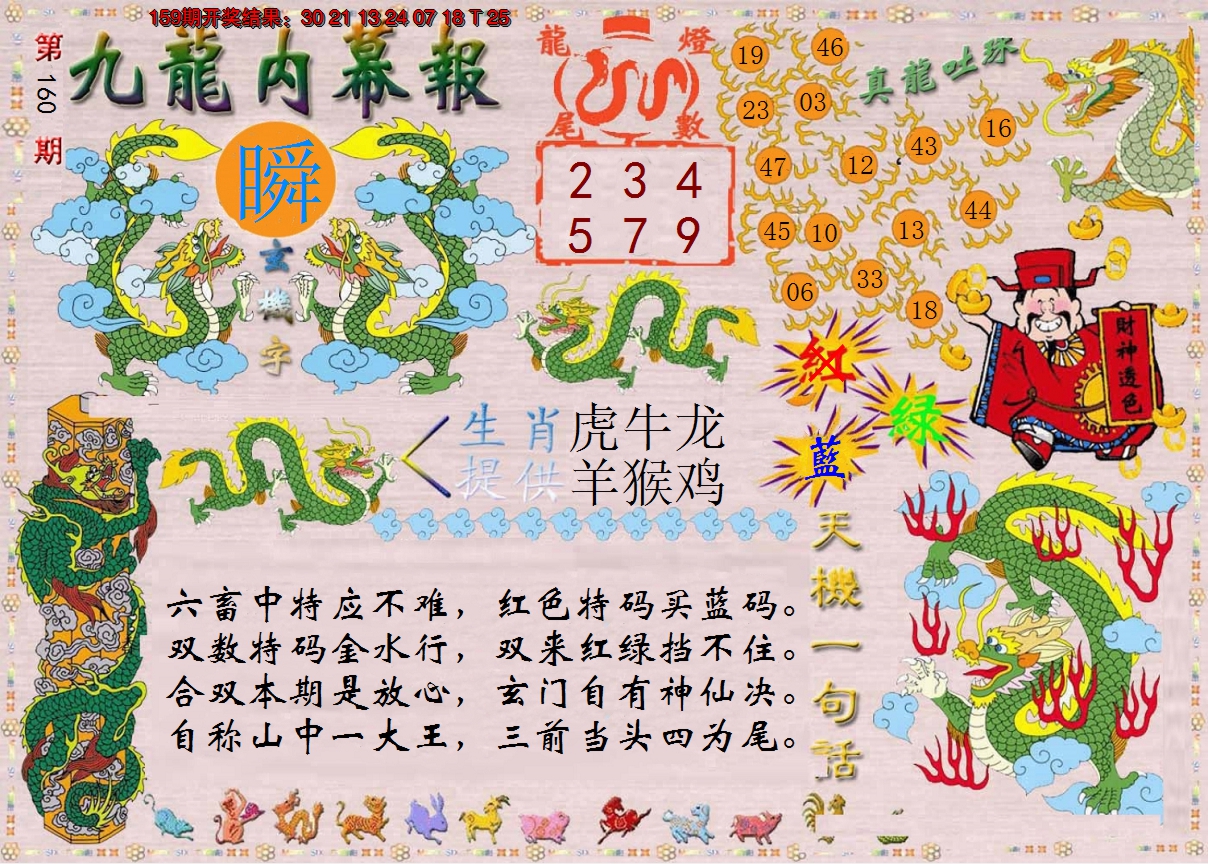 159期开奖结果：30 21 13 24 07 18 T 25
第160期
九龍内幕報
瞬
玄機字
龍燈
尾數
2 3 4
5 7 9
真龍吐珠
19 46
23 03
47 12 43 16
45 10 13 44
06 33 18
財神透色
紅
綠
藍
生肖提供
虎牛龙
羊猴鸡
天機一句話
六畜中特应不难，红色特码买蓝码。
双数特码金水行，双来红绿挡不住。
合双本期是放心，玄门自有神仙决。
自称山中一大王，三前当头四为尾。